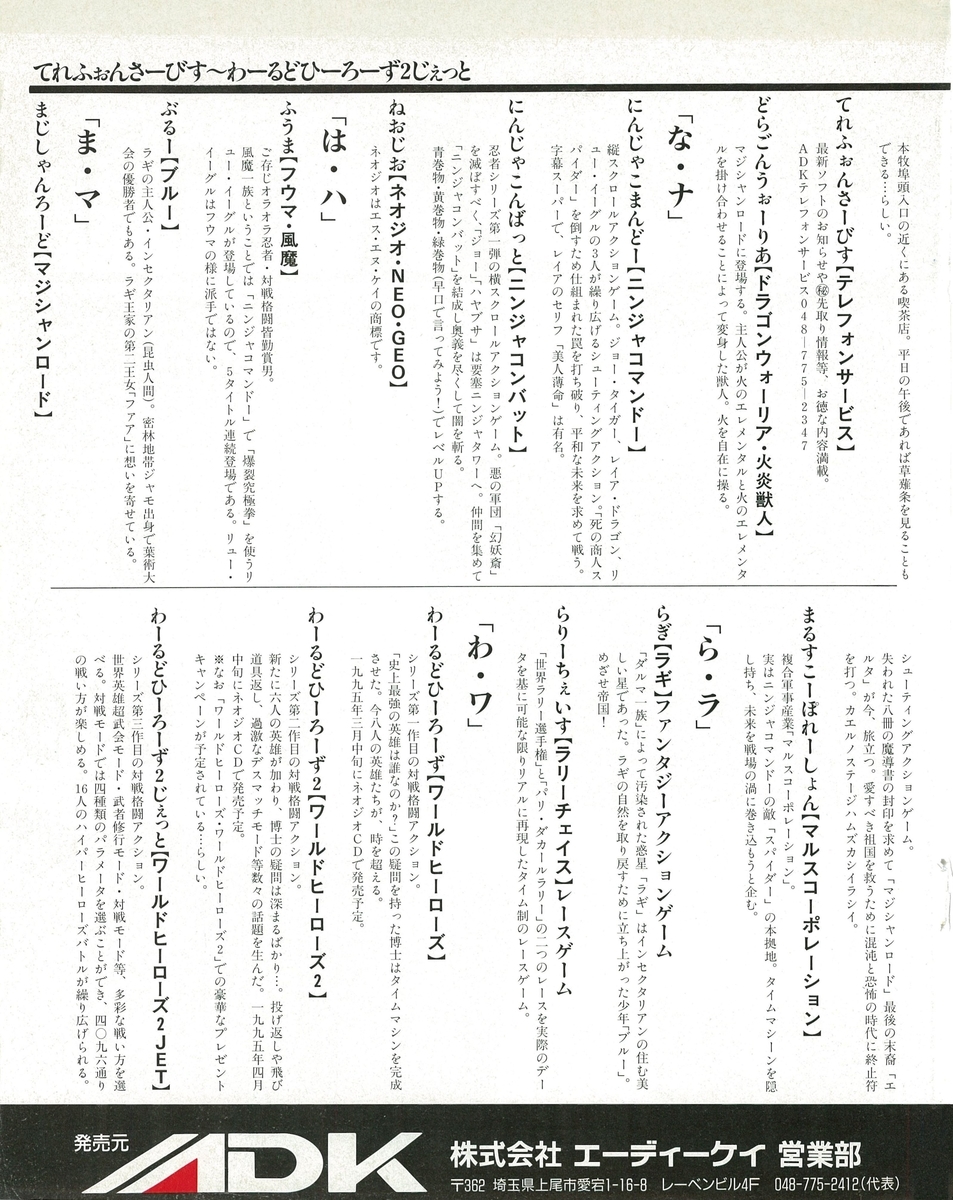 てれふぉんさーびす～わーるどひーろーず2じぇっと
本牧埠頭入口の近くにある喫茶店。平日の午後であれば草薙条を見ることも
できる…らしい。
てれふぉんさーびす【テレフォンサービス】
最新ソフトのお知らせや㊙先取り情報等、お徳な内容満載。
ADKテレフォンサービス048―775―2347
どらごんうぉーりあ【ドラゴンウォーリア・火炎獣人】
マジシャンロードに登場する。主人公が火のエレメンタルと火のエレメンタ
ルを掛け合わせることによって変身した獣人。火を自在に操る。
「な・ナ」
にんじゃこまんどー【ニンジャコマンドー】
縦スクロールアクションゲーム。ジョー・タイガー、レイア・ドラゴン、リ
ュー・イーグルの3人が繰り広げるシューティングアクション。「死の商人ス
パイダー」を倒すため仕組まれた罠を打ち破り、平和な未来を求めて戦う。
字幕スーパーで、レイアのセリフ「美人薄命」は有名。
にんじゃこんばっと【ニンジャコンバット】
忍者シリーズ第一弾の横スクロールアクションゲーム。悪の軍団「幻妖斎」
を滅ぼすべく、「ジョー」「ハヤブサ」は要塞ニンジャタワーへ。仲間を集めて
「ニンジャコンバット」を結成し奥義を尽くして闇を斬る。
青巻物・黄巻物・緑巻物(早口で言ってみよう!)でレベルUPする。
ねおじお【ネオジオ・NEO・GEO】
ネオジオはエス・エヌ・ケイの商標です。
「は・ハ」
ふうま【フウマ・風魔】
ご存じオラオラ忍者・対戦格闘皆勤賞男。
風魔一族ということでは「ニンジャコマンドー」で「爆裂究極拳」を使うリ
ュー・イーグルが登場しているので、5タイトル連続登場である。リュー・
イーグルはフウマの様に派手ではない。
ぶるー【ブルー】
ラギの主人公・インセクタリアン(昆虫人間)。密林地帯ジャモ出身で葉術大
会の優勝者でもある。ラギ王家の第二王女「ファア」に想いを寄せている。
「ま・マ」
まじしゃんろーど【マジシャンロード】
シューティングアクションゲーム。
失われた八冊の魔導書の封印を求めて「マジシャンロード」最後の末裔「エ
ルタ」が今、旅立つ。愛すべき祖国を救うために混沌と恐怖の時代に終止符
を打つ。カエルノステージハムズカシイラシイ。
まるすこーぽれーしょん【マルスコーポレーション】
複合軍事産業「マルスコーポレーション」。
実はニンジャコマンドーの敵「スパイダー」の本拠地。タイムマシーンを隠
し持ち、未来を戦場の渦に巻き込もうと企む。
「ら・ラ」
らぎ【ラギ】ファンタジーアクションゲーム
「ダルマ一族」によって汚染された惑星「ラギ」はインセクタリアンの住む美
しい星であった。ラギの自然を取り戻すために立ち上がった少年「ブルー」。
めざせ帝国!
らりーちぇいす【ラリーチェイス】レースゲーム
「世界ラリー選手権」と「パリ・ダカールラリー」の二つのレースを実際のデー
タを基に可能な限りリアルに再現したタイム制のレースゲーム。
「わ・ワ」
わーるどひーろーず【ワールドヒーローズ】
シリーズ第一作目の対戦格闘アクション。
「史上最強の英雄は誰なのか?」この疑問を持った博士はタイムマシンを完成
させた。今八人の英雄たちが、時を超える。
一九九五年三月中旬にネオジオCDで発売予定。
わーるどひーろーず2【ワールドヒーローズ2】
シリーズ第二作目の対戦格闘アクション。
新たに六人の英雄が加わり、博士の疑問は深まるばかり…。投げ返しや飛び
道具返し、過激なデスマッチモード等数々の話題を生んだ。一九九五年四月
中旬にネオジオCDで発売予定。
※なお「ワールドヒーローズ・ワールドヒーローズ2」での豪華なプレゼント
キャンペーンが予定されている…らしい。
わーるどひーろーず2じぇっと【ワールドヒーローズ2JET】
シリーズ第三作目の対戦格闘アクション。
世界英雄超武会モード・武者修行モード・対戦モード等、多彩な戦い方を選
べる。対戦モードでは四種類のパラメータを選ぶことができ、四〇九六通り
の戦い方が楽しめる。16人のハイパーヒーローズバトルが繰り広げられる。
発売元 ADK 株式会社 エーディーケイ 営業部
〒362 埼玉県上尾市愛宕1-16-8 レーベンビル4F 048-775-2412(代表)